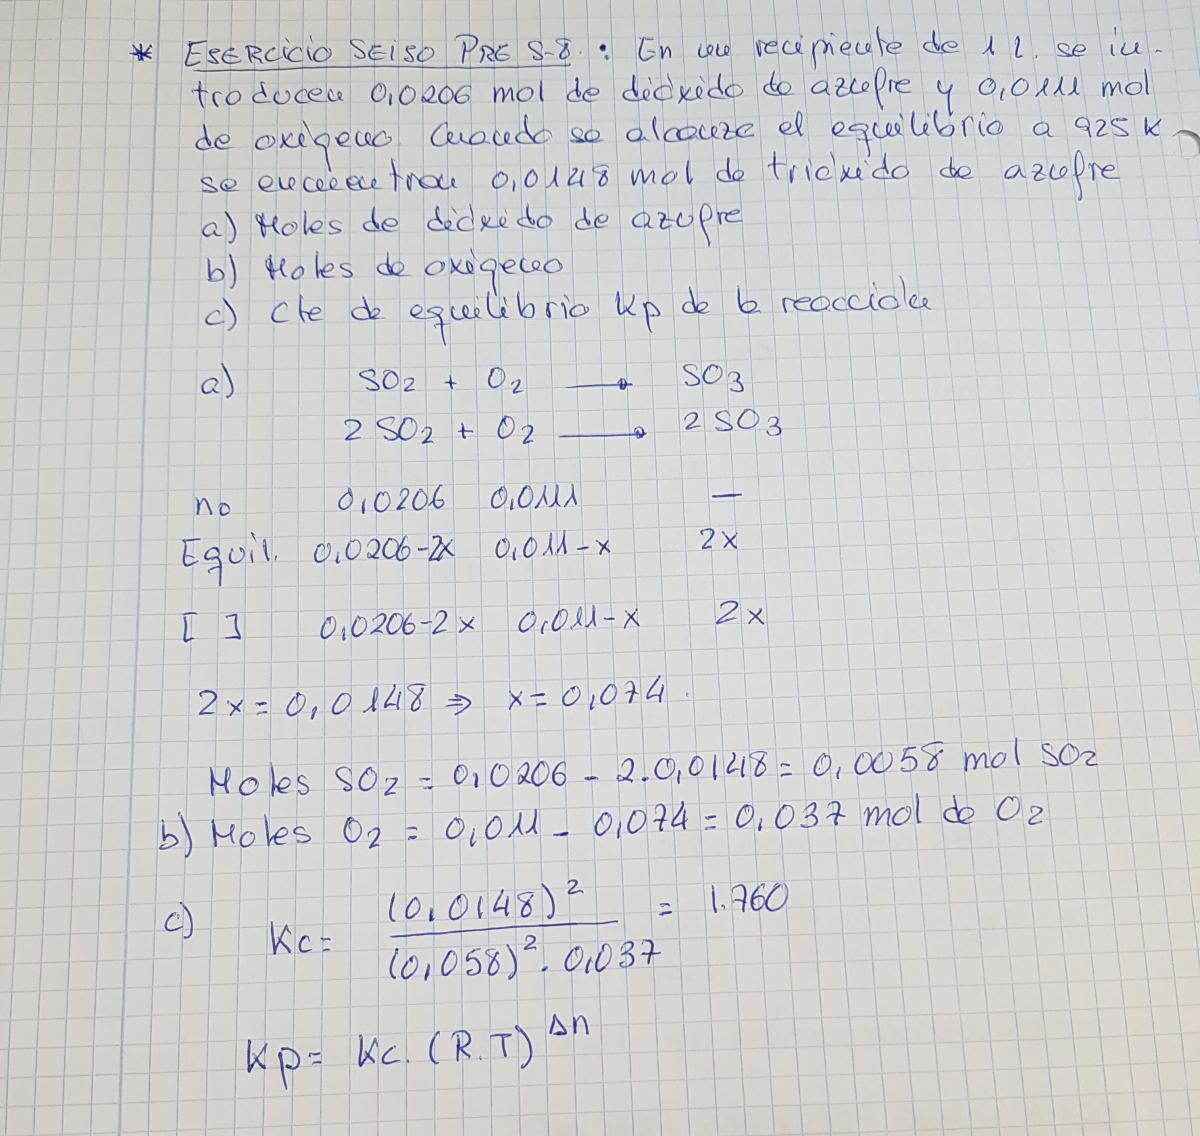 * EJERCICIO SEISO PRE S-8. : En un recipiente de 1 L. se in-
troducen 0,0206 mol de dióxido de azufre y 0,0111 mol
de oxígeno Cuando se alcanza el equilibrio a 925 K
se encuentran 0,0148 mol de trióxido de azufre
a) Moles de dióxido de azufre
b) Moles de oxígeno
c) Cte de equilibrio Kp de la reacción
a) SO2 + O2 ⟶ SO3
2 SO2 + O2 ⟶ 2 SO3
no 0,0206 0,0111 —
Equil. 0,0206-2x 0,011-x 2x
[ ] 0,0206-2x 0,011-x 2x
2x = 0,0148 ⇒ x = 0,074.
Moles SO2 = 0,0206 - 2.0,0148 = 0,0058 mol SO2
b) Moles O2 = 0,011 - 0,074 = 0,037 mol de O2
c) Kc = (0,0148)² / (0,058)² . 0,037 = 1.760
Kp = Kc. (R.T)^Δn